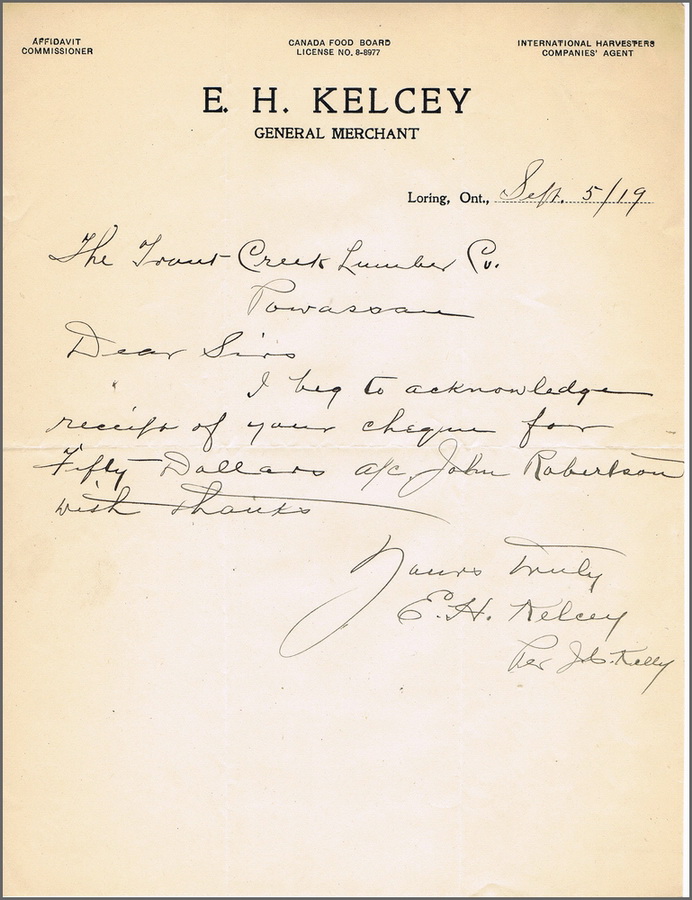 AFFIDAVIT
COMMISSIONER
CANADA FOOD BOARD
LICENSE NO. 8-8977
INTERNATIONAL HARVESTERS
COMPANIES' AGENT
E. H. KELCEY
GENERAL MERCHANT
Loring, Ont., Sept. 5/19
The Trout Creek Lumber Co.
Powassan
Dear Sirs
I beg to acknowledge
receipt of your cheque for
Fifty Dollars a/c John Robertson
with thanks
Yours Truly
E. H. Kelcey
Per Kelly